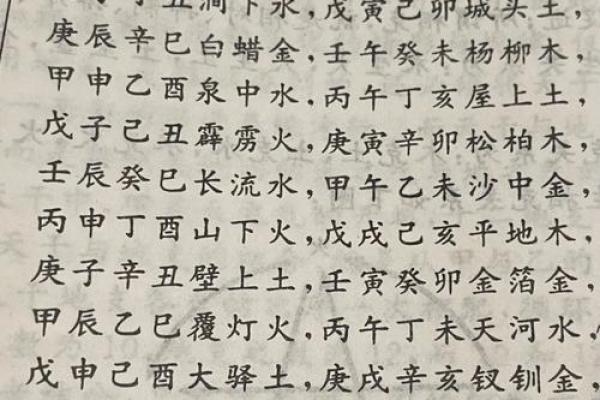 丑涧下水,戊寅己卯城头土,
庚辰辛巳白蜡金,壬午癸未杨柳木,
甲申乙酉泉中水,丙午丁亥屋上土,
戊子己丑霹雳火,庚寅辛卯松柏木,
壬辰癸巳长流水,甲午乙未沙中金,
丙申丁酉山下火,戊戌己亥平地木,
庚子辛丑壁上土,壬寅癸卯金箔金,
甲辰乙巳覆灯火,丙午丁未天河水,
戊申己酉大驿土,庚戌辛亥钗钏金,